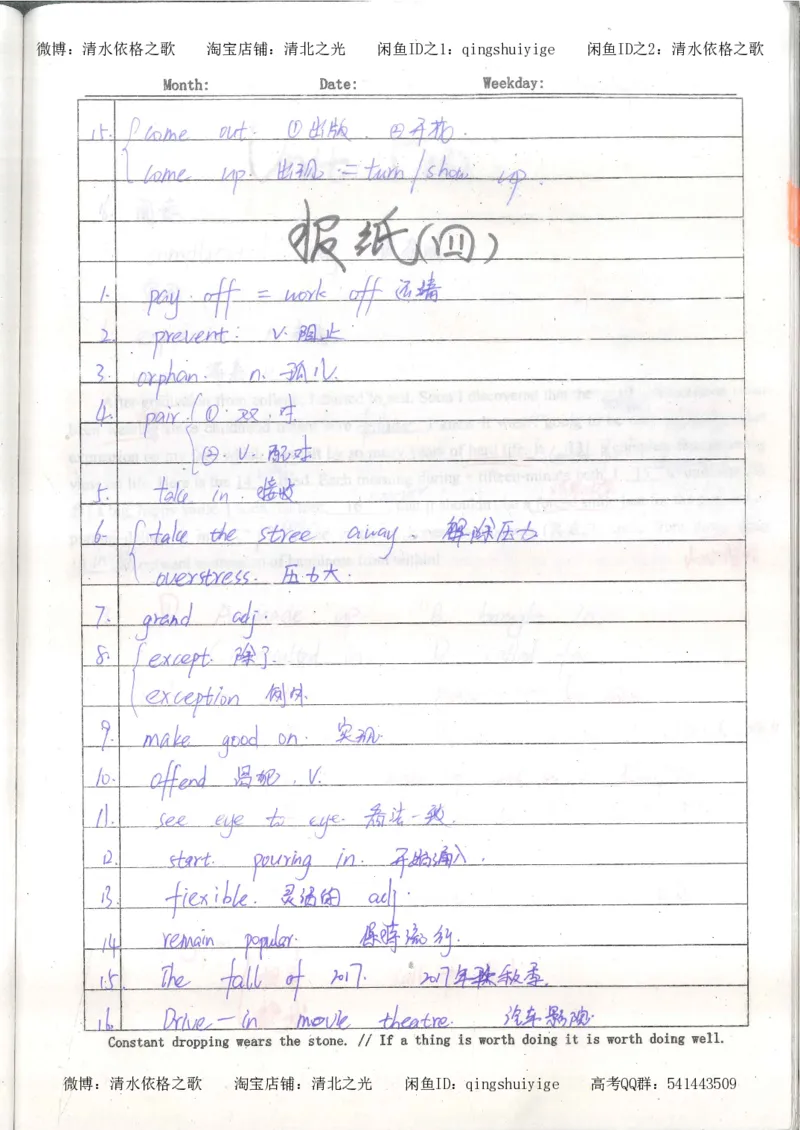 微博：清水依格之歌 淘宝店铺：清北之光 闲鱼ID之1：qingshuiyige 闲鱼ID之2：清水依格之歌
Month: Date: Weekday:
15. come out. ①出版. ②开花.
come up. 出现 = turn/show up.
报纸(四)
1. pay off = work off 还清
2. prevent: v. 阻止
3. orphan. n. 孤儿.
4. pair. ① 双，对
② v. 配对
5. take in. 接收
6. take the stree away. 解除压力
overstress. 压力大.
7. grand adj.
8. except. 除了.
exception 例外.
9. make good on. 实现.
10. offend 冒犯. v.
11. see eye to eye. 看法一致.
12. start. pouring in. 开始涌入.
13. flexible. 灵活的 adj.
14 remain popular. 保持流行.
15. The fall of 2017. 2017年秋季.
16. Drive-in movie theatre. 汽车影院.
Constant dropping wears the stone. // If a thing is worth doing it is worth doing well.
微博：清水依格之歌 淘宝店铺：清北之光 闲鱼ID：qingshuiyige 高考QQ群：541443509